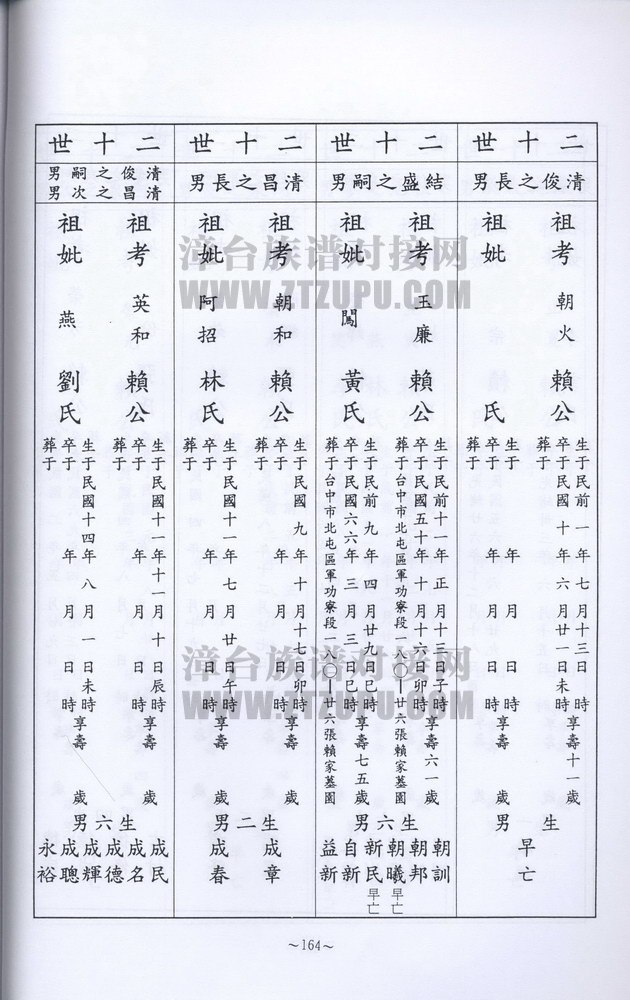 二十世
清俊之長男
祖考 朝火 賴公
生于民前一年七月十三日 時享壽十一歲
卒于民國十年六月廿一日未時
葬于
祖妣 氏
生于 年 月 日 時享壽 歲
卒于 年 月 日 時
葬于
生 男
早亡
二十世
結盛之嗣男
祖考 玉廉 賴公
生于民前十一年正月十三日子時享壽六一歲
卒于民國五十年十月十六日卯時
葬于台中市北屯區軍功寮段一八〇-廿六張賴家墓園
祖妣 闖 黃氏
生于民前九年四月廿九日巳時享壽七五歲
卒于民國六六年三月三日巳時
葬于台中市北屯區軍功寮段一八〇-廿六張賴家墓園
生六男
朝訓
朝邦
朝曦 早亡
新民 早亡
自新
益新
二十世
清昌之長男
祖考 朝和 賴公
生于民國九年十月十七日卯時享壽 歲
卒于 年 月 日 時
葬于
祖妣 阿招 林氏
生于民國十一年七月廿日午時享壽 歲
卒于 年 月 日 時
葬于
生二男
成章
成春
二十世
清俊之嗣男
清昌之次男
祖考 英和 賴公
生于民國十一年十一月十日辰時享壽 歲
卒于 年 月 日 時
葬于
祖妣 燕 劉氏
生于民國十四年八月一日未時享壽 歲
卒于 年 月 日 時
葬于
生六男
成民
成名
成德
成輝
成聰
永裕
~164~
漳台族谱对接网
WWW.ZTZUPU.COM
漳台族谱对接网
WWW.ZTZUPU.COM